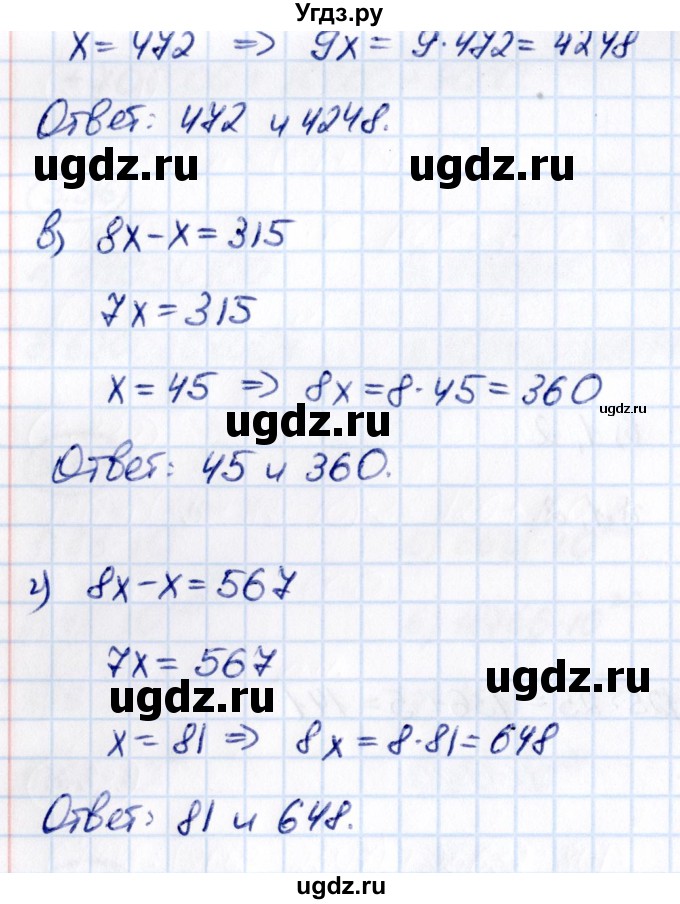 Угдз.ру
x = 472 => 9x = 9·472 = 4248
Ответ: 472 и 4248.
ugdz.ru ugdz.ru
в) 8x - x = 315
7x = 315
x = 45 => 8x = 8·45 = 360
ugdz.ru
ugdz.ru
Ответ: 45 и 360.
г) 8x - x = 567
7x = 567
ugdz.ru
ugdz.ru
x = 81 => 8x = 8·81 = 648
Ответ: 81 и 648.
ugdz.ru